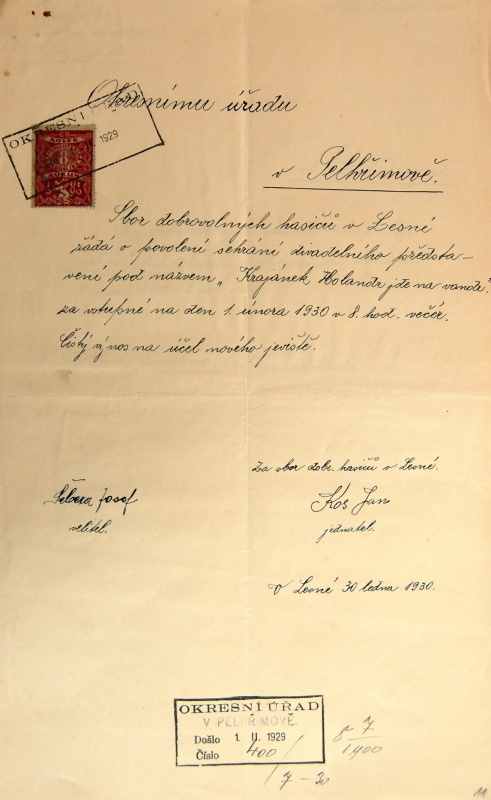 Okresnímu úřadu
OKRESNÍ
1929
v Pelhřimově.
KOLEK
Sbor dobrovolných hasičů v Lesné
žádá o povolení sehrání divadelního předsta-
vení pod názvem „Krajánek Holandr jde na vandr"
za vstupné na den 1. února 1930 v 8. hod. večer.
Čistý výnos na účel nového jeviště.
Za sbor dobr. hasičů v Lesné.
Josef
Kos Jan
velitel.
jednatel.
V Lesné 30 ledna 1930.
OKRESNÍ ÚŘAD
V PELHŘIMOVĚ.
Došlo 1. II. 1929
Číslo 400/
7
1400
/7-30
11